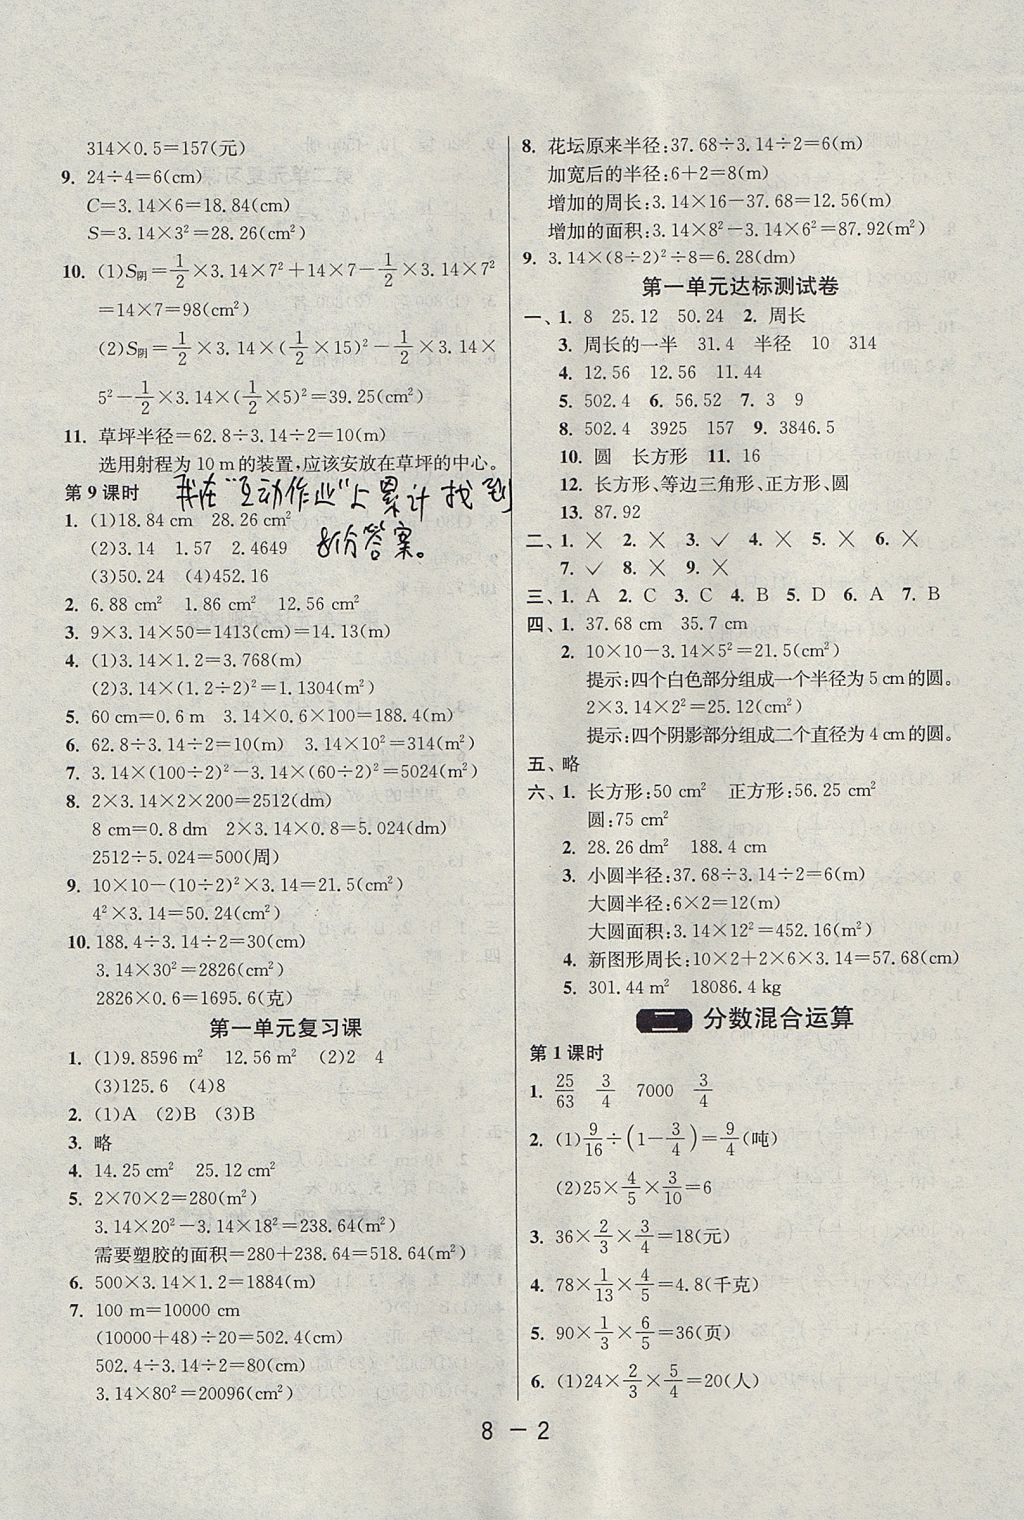 314×0.5=157(元)
9. 24÷4=6(cm)
C=3.14×6=18.84(cm)
S=3.14×3²=28.26(cm²)
10. (1)S阴=1/2×3.14×7²+14×7-1/2×3.14×7²
=14×7=98(cm²)
(2)S阴=1/2×3.14×(1/2×15)²-1/2×3.14×
5²-1/2×3.14×(1/2×5)²=39.25(cm²)
11. 草坪半径=62.8÷3.14÷2=10(m)
选用射程为10 m的装置,应该安放在草坪的中心。
第9课时
我在“互动作业”上累计找到
份答案。
1. (1)18.84 cm 28.26 cm²
(2)3.14 1.57 2.4649
(3)50.24 (4)452.16
2. 6.88 cm² 1.86 cm² 12.56 cm²
3. 9×3.14×50=1413(cm)=14.13(m)
4. (1)3.14×1.2=3.768(m)
(2)3.14×(1.2÷2)²=1.1304(m²)
5. 60 cm=0.6 m 3.14×0.6×100=188.4(m)
6. 62.8÷3.14÷2=10(m) 3.14×10²=314(m²)
7. 3.14×(100÷2)²-3.14×(60÷2)²=5024(m²)
8. 2×3.14×2×200=2512(dm)
8 cm=0.8 dm 2×3.14×0.8=5.024(dm)
2512÷5.024=500(周)
9. 10×10-(10÷2)²×3.14=21.5(cm²)
4²×3.14=50.24(cm²)
10. 188.4÷3.14÷2=30(cm)
3.14×30²=2826(cm²)
2826×0.6=1695.6(克)
第一单元复习课
1. (1)9.8596 m² 12.56 m² (2)2 4
(3)125.6 (4)8
2. (1)A (2)B (3)B
3. 略
4. 14.25 cm² 25.12 cm²
5. 2×70×2=280(m²)
3.14×20²-3.14×18²=238.64(m²)
需要塑胶的面积=280+238.64=518.64(m²)
6. 500×3.14×1.2=1884(m)
7. 100 m=10000 cm
(10000+48)÷20=502.4(cm)
502.4÷3.14÷2=80(cm)
3.14×80²=20096(cm²)
8. 花坛原来半径:37.68÷3.14÷2=6(m)
加宽后的半径:6+2=8(m)
增加的周长:3.14×16-37.68=12.56(m)
增加的面积:3.14×8²-3.14×6²=87.92(m²)
9. 3.14×(8÷2)²÷8=6.28(dm)
第一单元达标测试卷
一、1. 8 25.12 50.24 2. 周长
3. 周长的一半 31.4 半径 10 314
4. 12.56 12.56 11.44
5. 502.4 6. 56.52 7. 3 9
8. 502.4 3925 157 9. 3846.5
10. 圆 长方形 11. 16
12. 长方形、等边三角形、正方形、圆
13. 87.92
二、1. × 2. × 3. ✓ 4. × 5. × 6. ×
7. ✓ 8. × 9. ×
三、1. A 2. C 3. C 4. B 5. D 6. A 7. B
四、1. 37.68 cm 35.7 cm
2. 10×10-3.14×5²=21.5(cm²)
提示:四个白色部分组成一个半径为5 cm的圆。
2×3.14×2²=25.12(cm²)
提示:四个阴影部分组成二个直径为4 cm的圆。
五、略
六、1. 长方形:50 cm² 正方形:56.25 cm²
圆:75 cm²
2. 28.26 dm² 188.4 cm
3. 小圆半径:37.68÷3.14÷2=6(m)
大圆半径:6×2=12(m)
大圆面积:3.14×12²=452.16(m²)
4. 新图形周长:10×2+2×6×3.14=57.68(cm)
5. 301.44 m² 18086.4 kg
二 分数混合运算
第1课时
1. 25/63 3/4 7000 3/4
2. (1)9/16÷(1-3/4)=9/4(吨)
(2)25×4/5×3/10=6
3. 36×2/3×3/4=18(元)
4. 78×1/13×4/5=4.8(千克)
5. 90×1/3×6/5=36(页)
6. (1)24×2/3×5/4=20(人)
8-2